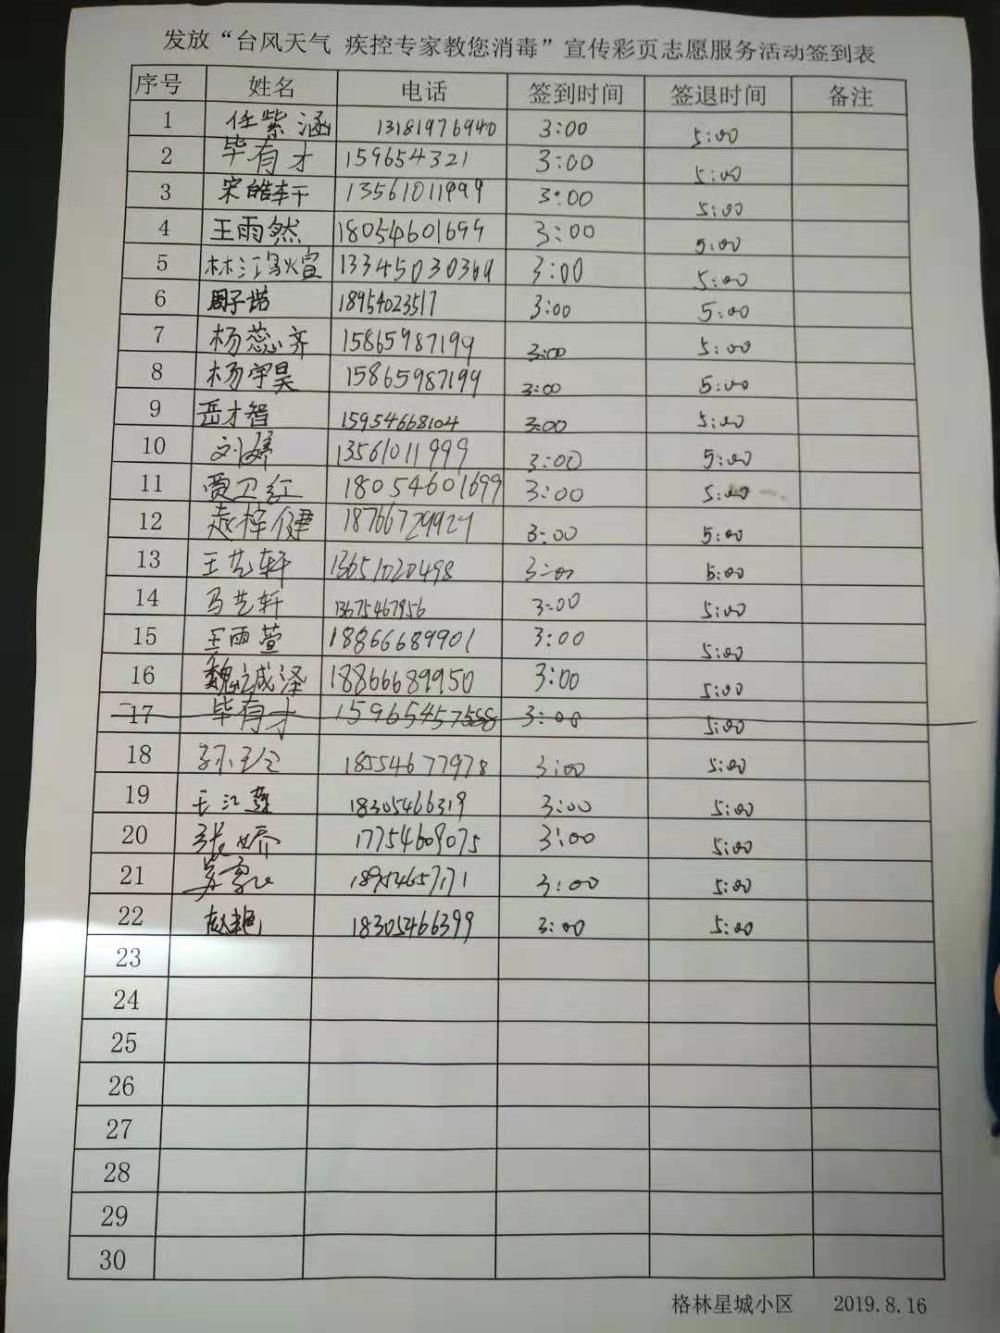 发放“台风天气 疾控专家教您消毒”宣传彩页志愿服务活动签到表
序号 姓名 电话 签到时间 签退时间 备注
1 任紫涵 13181976940 3:00 5:00
2 毕有才 159654321 3:00 5:00
3 宋皓轩 13561011999 3:00 5:00
4 王雨然 18054601699 3:00 5:00
5 林江 13345030369 3:00 5:00
6 周子诺 18954023517 3:00 5:00
7 杨蕊齐 15865987199 3:00 5:00
8 杨宇昊 15865987199 3:00 5:00
9 岳才智 15954668104 3:00 5:00
10 刘婷 13561011999 3:00 5:00
11 贾卫红 18054601699 3:00 5:00
12 赵梓健 18766729927 3:00 5:00
13 王艺轩 13651020498 3:00 5:00
14 马艺轩 13675467956 3:00 5:00
15 王雨萱 18866689901 3:00 5:00
16 魏诚泽 18866689950 3:00 5:00
17 毕有才 15965457558 3:00 5:00
18 18554677978 3:00 5:00
19 王江莲 18305466319 3:00 5:00
20 张娇 17754609075 3:00 5:00
21 18954657171 3:00 5:00
22 赵艳 18305466399 3:00 5:00
23
24
25
26
27
28
29
30
格林星城小区 2019.8.16